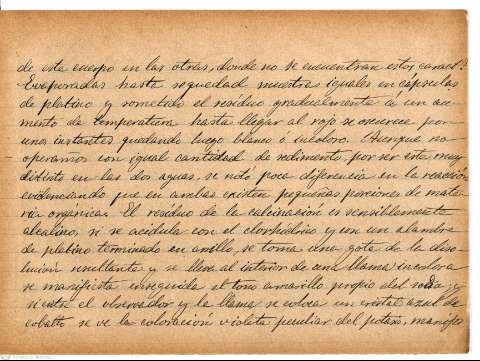 de este cuerpo en las otras, donde no se encuentran estos caract.s
Evaporadas hasta sequedad muestras iguales en cápsulas
de platino y sometido el resíduo gradualmente a un au-
mento de temperatura hasta llegar al rojo se oscurece por
unos instantes quedando luego blanco ó incoloro. Aunque no
operamos con igual cantidad de sedimento, por ser este muy
distinto en las dos aguas, se notó poca diferencia en la reacción
evidenciando que en ambas existen pequeñas porciones de mate-
ria orgánica. El resíduo de la calcinación es sensiblemente
alcalino, si se acidula con el clorhídrico y con un alambre
de platino terminado en anillo, se toma una gota de la diso-
lución resultante y se lleva al interior de una llama incolora
se manifiesta enseguida el tono amarillo propio del sodio y
si entre el observador y la llama se coloca un cristal azul de
cobalto se ve la coloración violeta peculiar del potasio, manifes